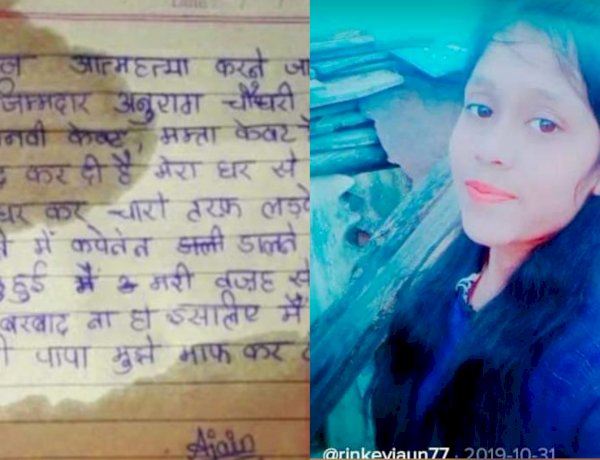 आत्महत्या करने जा
जिम्मदार अनुराग चौधरी
केवट, ममता केवट
कर दी है मेरा घर से
कर चारो तरफ लड़के
में डालते
हुई मैं मरी वजह से
बरबाद ना हो इसलिए मैं
पापा मुझे माफ कर
@rinkeyjaun77 · 2019-10-31